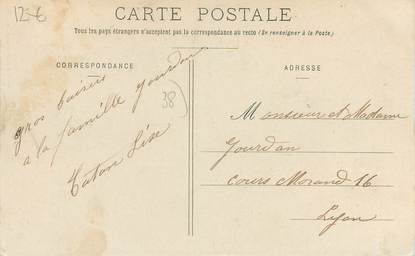 12-6
CARTE POSTALE
Tous les pays étrangers n'acceptent pas la correspondance au recto (Se renseigner à la Poste)
CORRESPONDANCE
gros baisers
a la famille Jourdan
Tatan Lise
38
ADRESSE
Monsieur et Madame
Jourdan
Cours Morand 16
Lyon